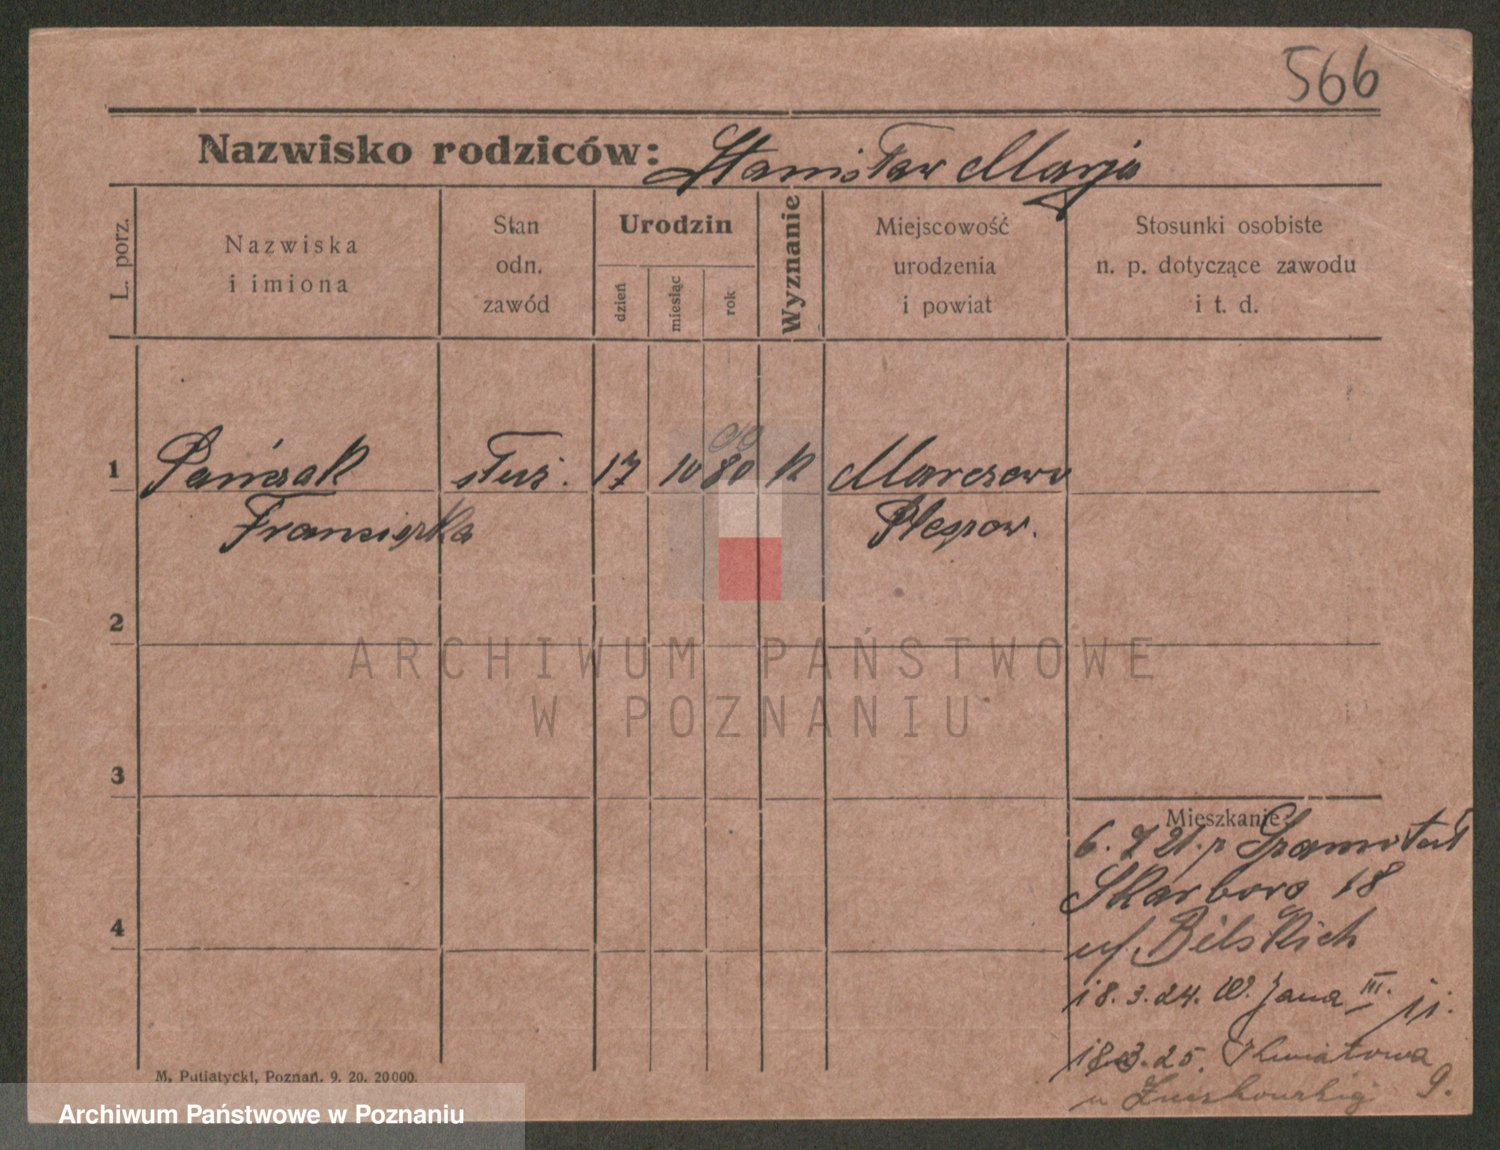 566
Nazwisko rodziców: Stanisław Marja
L. porz.
Nazwiska
i imiona
Stan
odn.
zawód
Urodzin
dzień
miesiąc
rok
Wyznanie
Miejscowość
urodzenia
i powiat
Stosunki osobiste
n. p. dotyczące zawodu
i t. d.
1 Pańczak służ. 17 10 80 k Marczewo
Franciszka Pleszew.
2
ARCHIWUM PAŃSTWOWE
W POZNANIU
3
Mieszkanie:
6. 9 21. p
Skarbowa 18
u/ Bilskich
18. 3. 24. W. Jana III. 11.
18.3.25. Kwiatowa 9.
u
4
M. Putiatycki, Poznań. 9. 20. 20000.
Archiwum Państwowe w Poznaniu